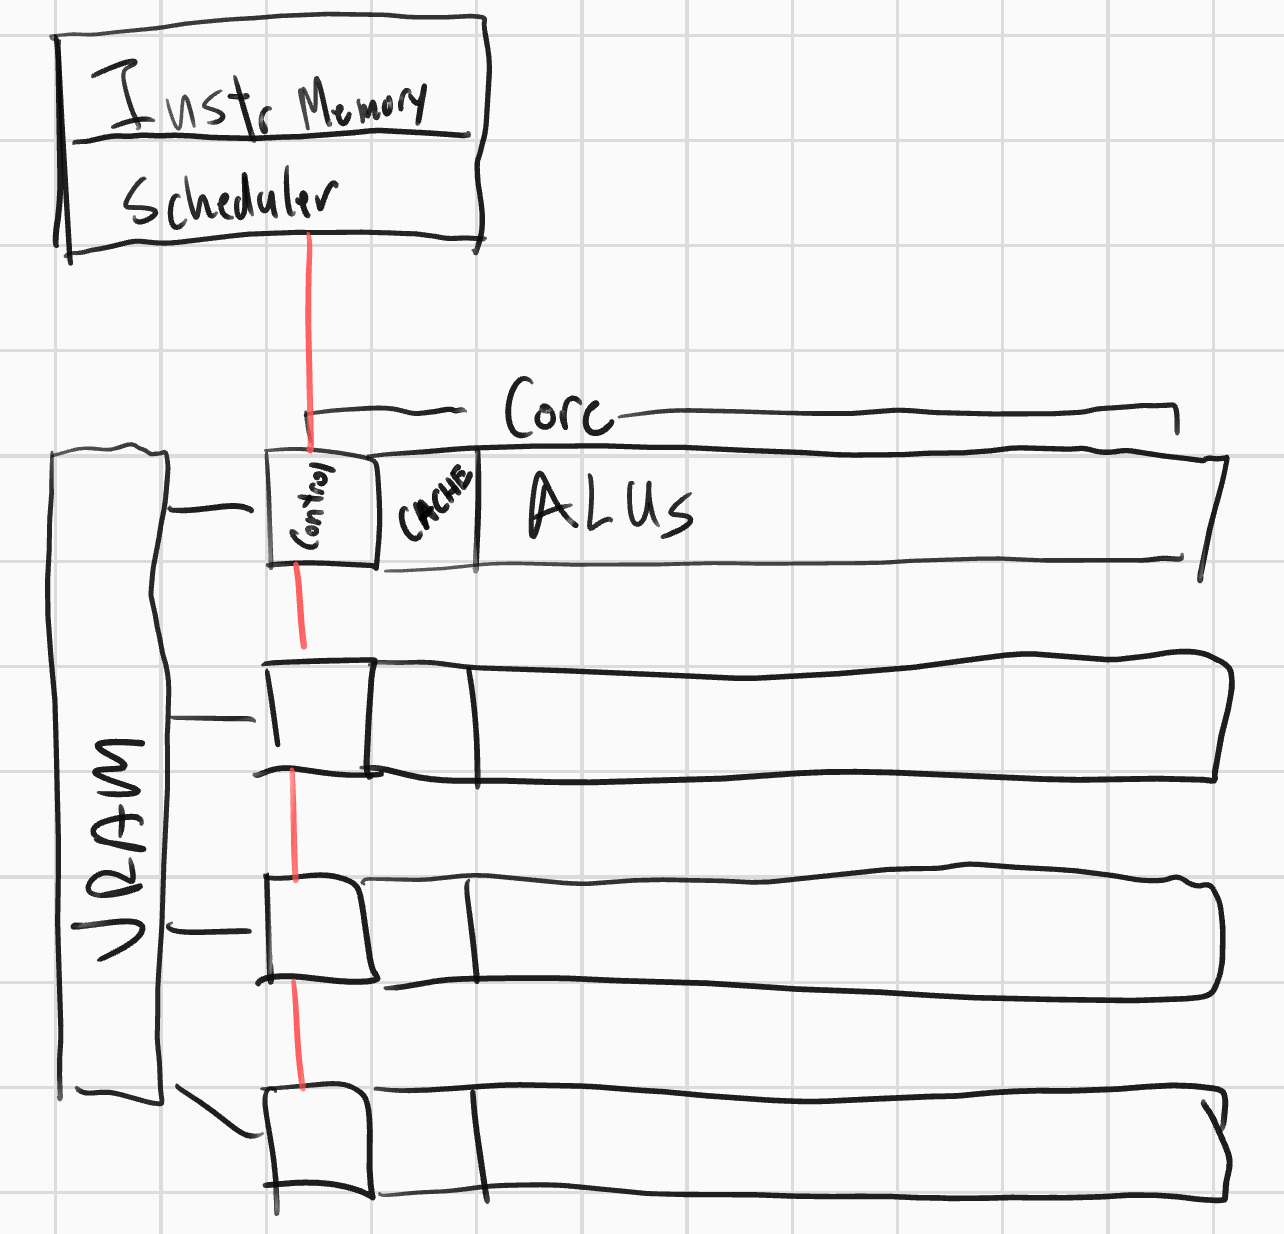 Instr Memory
Scheduler
Core
Control
CACHE
ALUs
VRAM